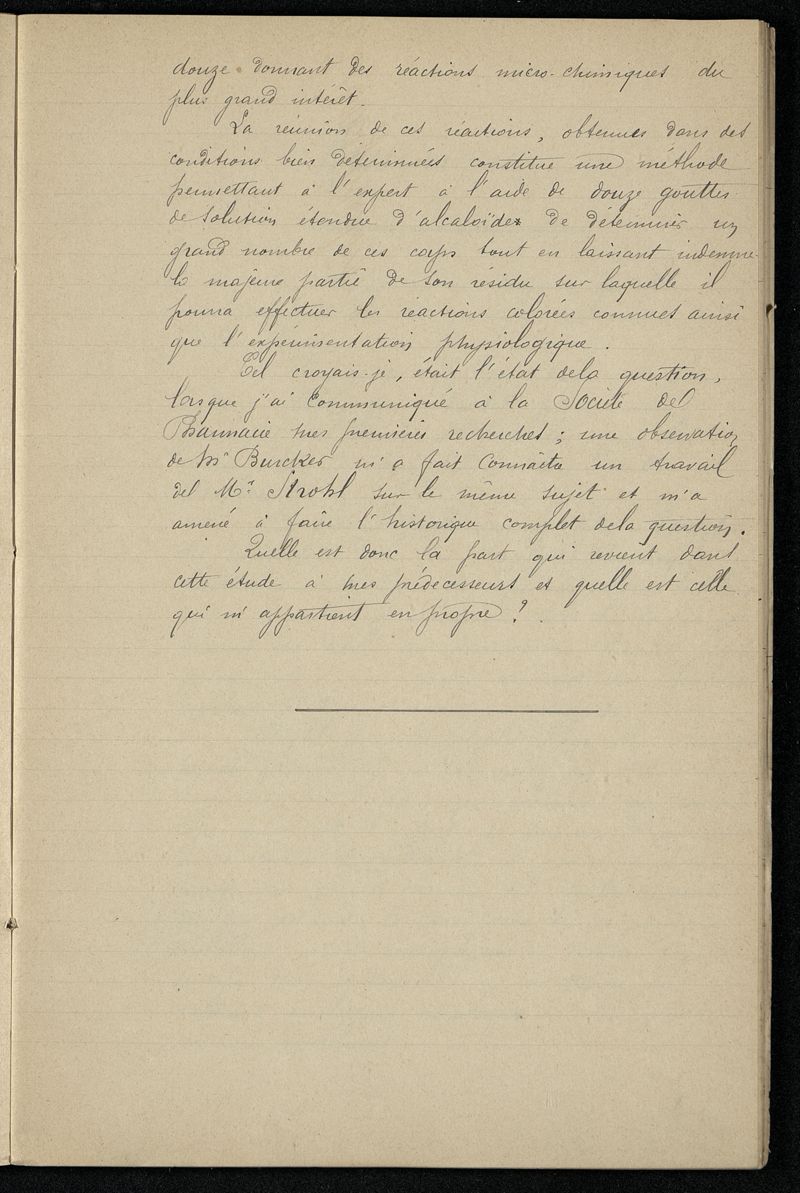 douze donnant des réactions micro-chimiques du
plus grand intérêt.
La réunion de ces réactions, obtenues dans des
conditions bien déterminées constitue une méthode
permettant à l'expert à l'aide de douze gouttes
de solution étendue d'alcaloïdes de déterminer un
grand nombre de ces corps tout en laissant indemne
la majeure partie de son résidu sur laquelle il
pourra effectuer les réactions colorées connues ainsi
que l'expérimentation physiologique.
Tel croyais-je, était l'état de la question,
lorsque j'ai communiqué à la Société de
Pharmacie mes premières recherches ; une observation
de Mr Burcker m'a fait connaître un travail
de Mr Strohl sur le même sujet et m'a
amené à faire l'historique complet de la question.
Quelle est donc la part qui revient dans
cette étude à mes prédécesseurs et quelle est celle
qui m'appartient en propre ?